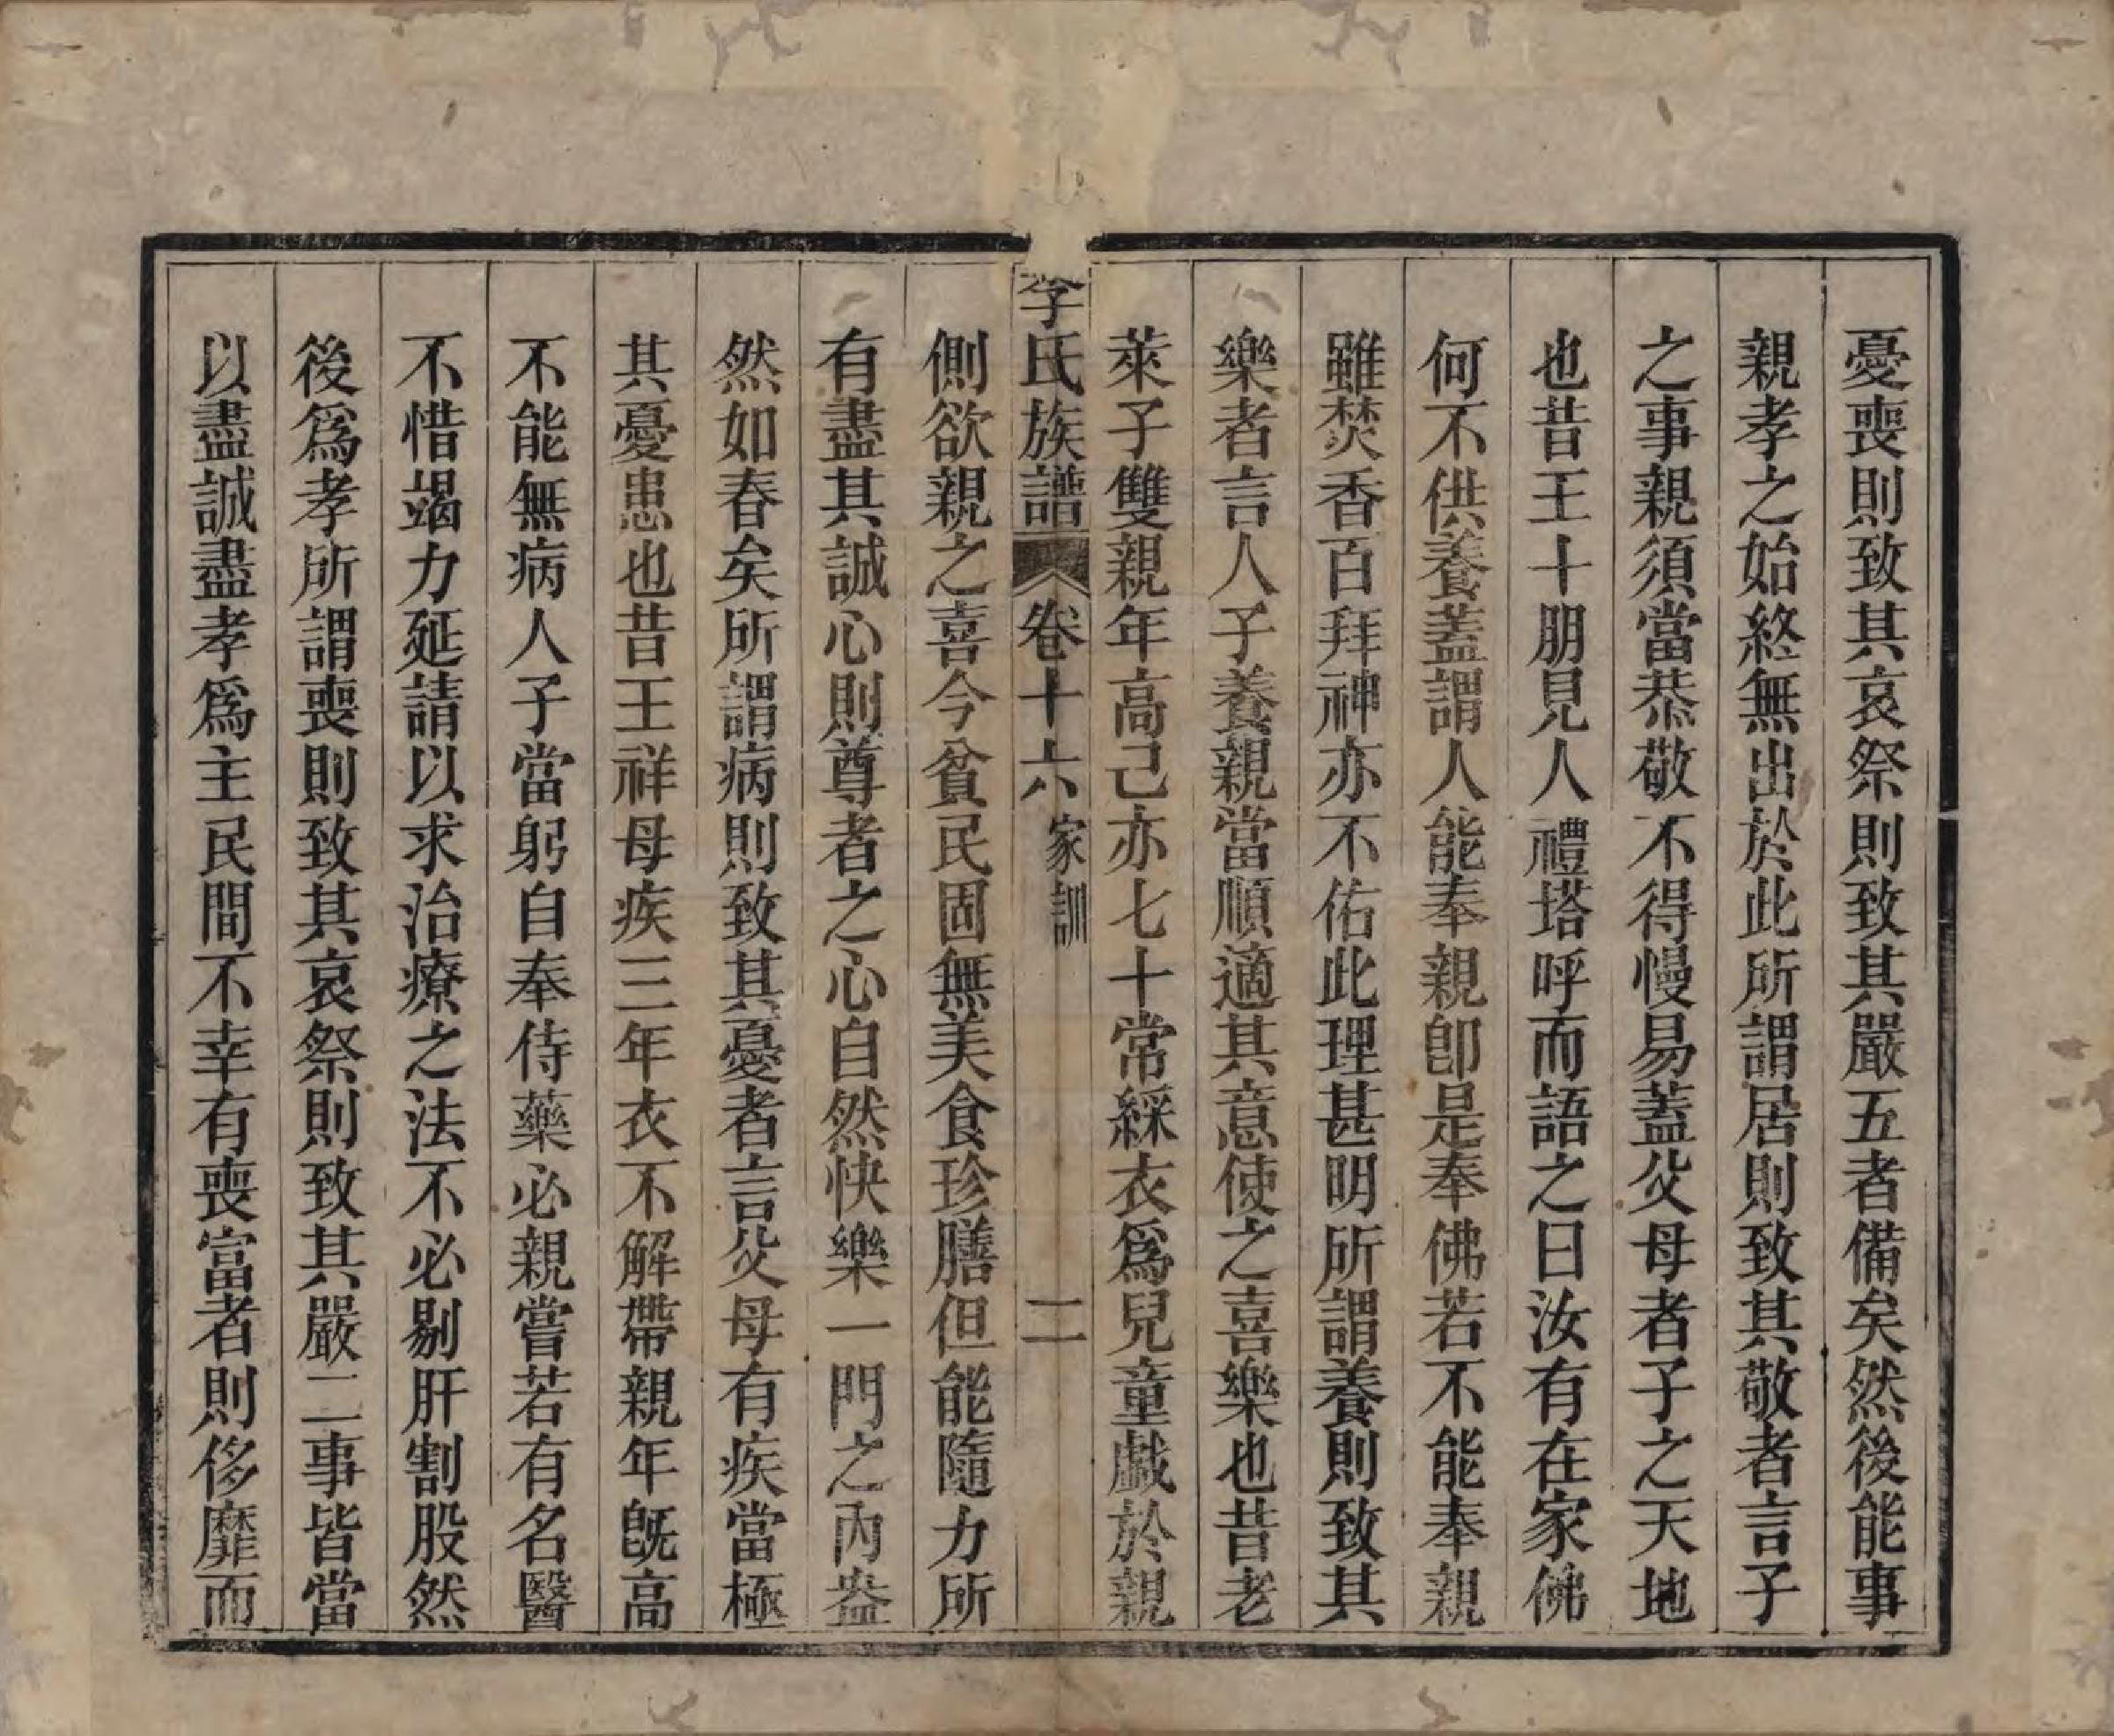 憂喪則致其哀祭則致其嚴五者備矣然後能事
親孝之始終無出於此所謂居則致其敬者言子
之事親須當恭敬不得慢易蓋父母者子之天地
也昔王十朋見人禮塔呼而語之曰汝有在家佛
何不供養蓋謂人能奉親卽是奉佛若不能奉親
雖焚香百拜神亦不佑此理甚明所謂養則致其
樂者言人子養親當順適其意使之喜樂也昔老
萊子雙親年高己亦七十常綵衣爲兒童戱於親
李氏族譜 卷十六 家訓 二
側欲親之喜今貧民固無美食珍膳但能隨力所
有盡其誠心則尊者之心自然快樂一門之內盎
然如春矣所謂病則致其憂者言父母有疾當極
其憂患也昔王祥母疾三年衣不解帶親年旣高
不能無病人子當躬自奉侍藥必親嘗若有名醫
不惜竭力延請以求治療之法不必剔肝割股然
後爲孝所謂喪則致其哀祭則致其嚴二事皆當
以盡誠盡孝爲主民間不幸有喪富者則侈靡而